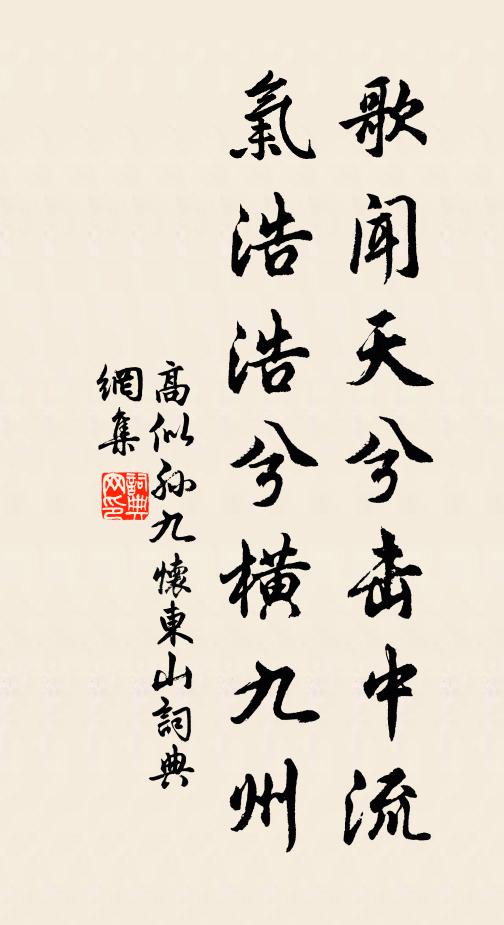 歌聞天兮击中流
氣浩浩兮橫九州
高似孫九懷東山詞典
網集
詞典
网印